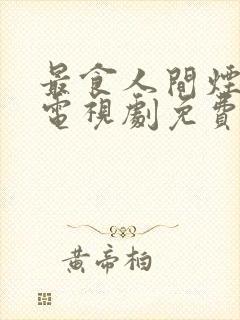 最食人間煙
電視劇免費
黃帝柏